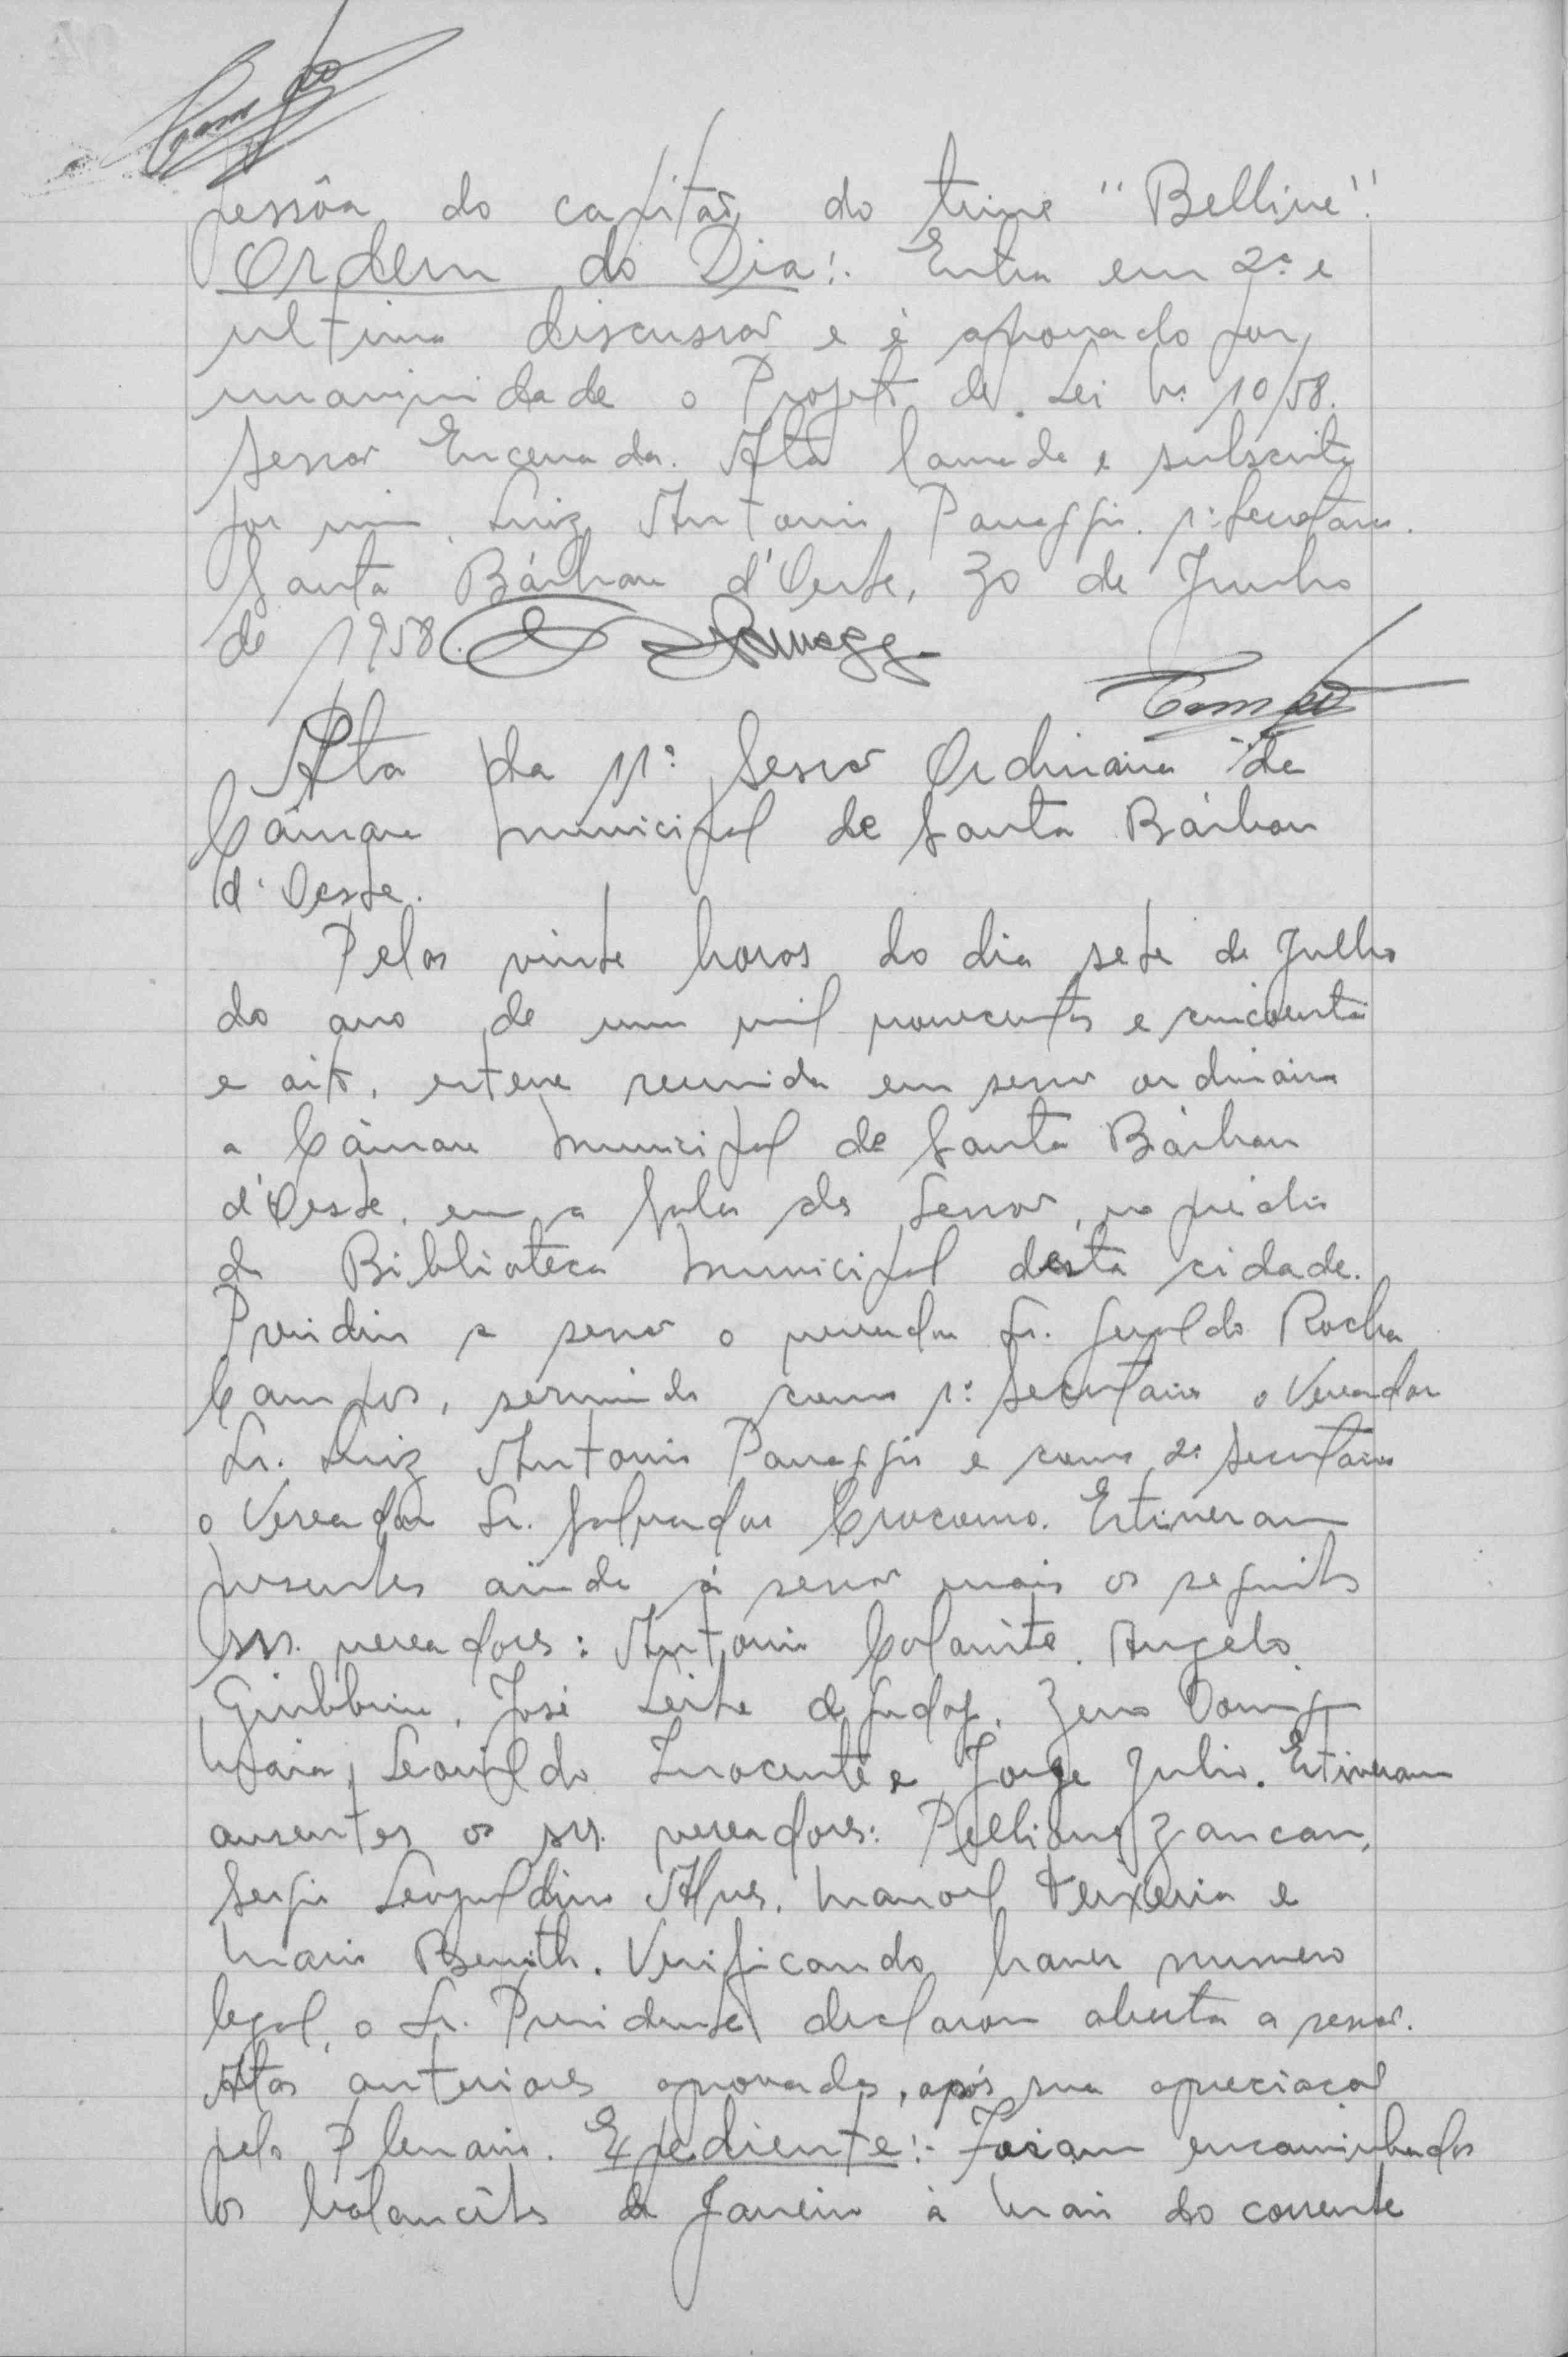 pessôa do capitão do time "Belline".
Ordem do Dia:. Entra em 2ª e
ultima discussão e é aprovado por
unanimidade o Projeto de Lei nº 10/58.
Sessão Encerrada. Ata lavrada e subscrita
por mim, Luiz Antonio Panaggio. 1º Secretario.
Santa Bárbara d'Oeste, 30 de Junho
de 1958.
Ata da 11ª Sessão Ordinaria da
Câmara Municipal de Santa Bárbara
d'Oeste.
Pelas vinte horas do dia sete de Julho
do ano de um mil novecentos e cincoenta
e oito, esteve reunida em sessão ordinária
a Câmara Municipal de Santa Bárbara
d'Oeste, em a Sala das Sessões, no prédio
da Biblioteca Municipal desta cidade.
Presidiu a sessão o vereador Sr. Geraldo Rocha
Campos, servindo como 1º Secretario o Vereador
Sr. Luiz Antonio Panaggio e como 2º Secretário
o Vereador Sr. Salvador Crocomo. Estiveram
presentes ainda á sessão mais os seguintes
srs. vereadores: Antonio Colanite, Angelo
Giubbina, José Leite de Godoy, Zeno Domingos
Maia, Leonildo Inocente e Jorge Julio. Estiveram
ausentes os srs. vereadores: Zancan,
Sergio Leopoldino Alves, Manoel Teixeira e
Mario. Verificando haver numero
legal, o Sr. Presidente declarou aberta a sessão.
Atas anteriores aprovadas, após sua apreciação
pelo Plenario. Expediente:- Foram encaminhados
os balancêtes de Janeiro à Maio do corrente